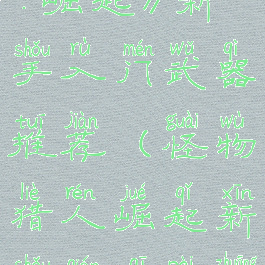 ·崛起》新
shǒu rù mén wǔ qì
手入门武器
tuī jiàn guài wù
推荐（怪物
liè rén jué qǐ xīn
猎人崛起新